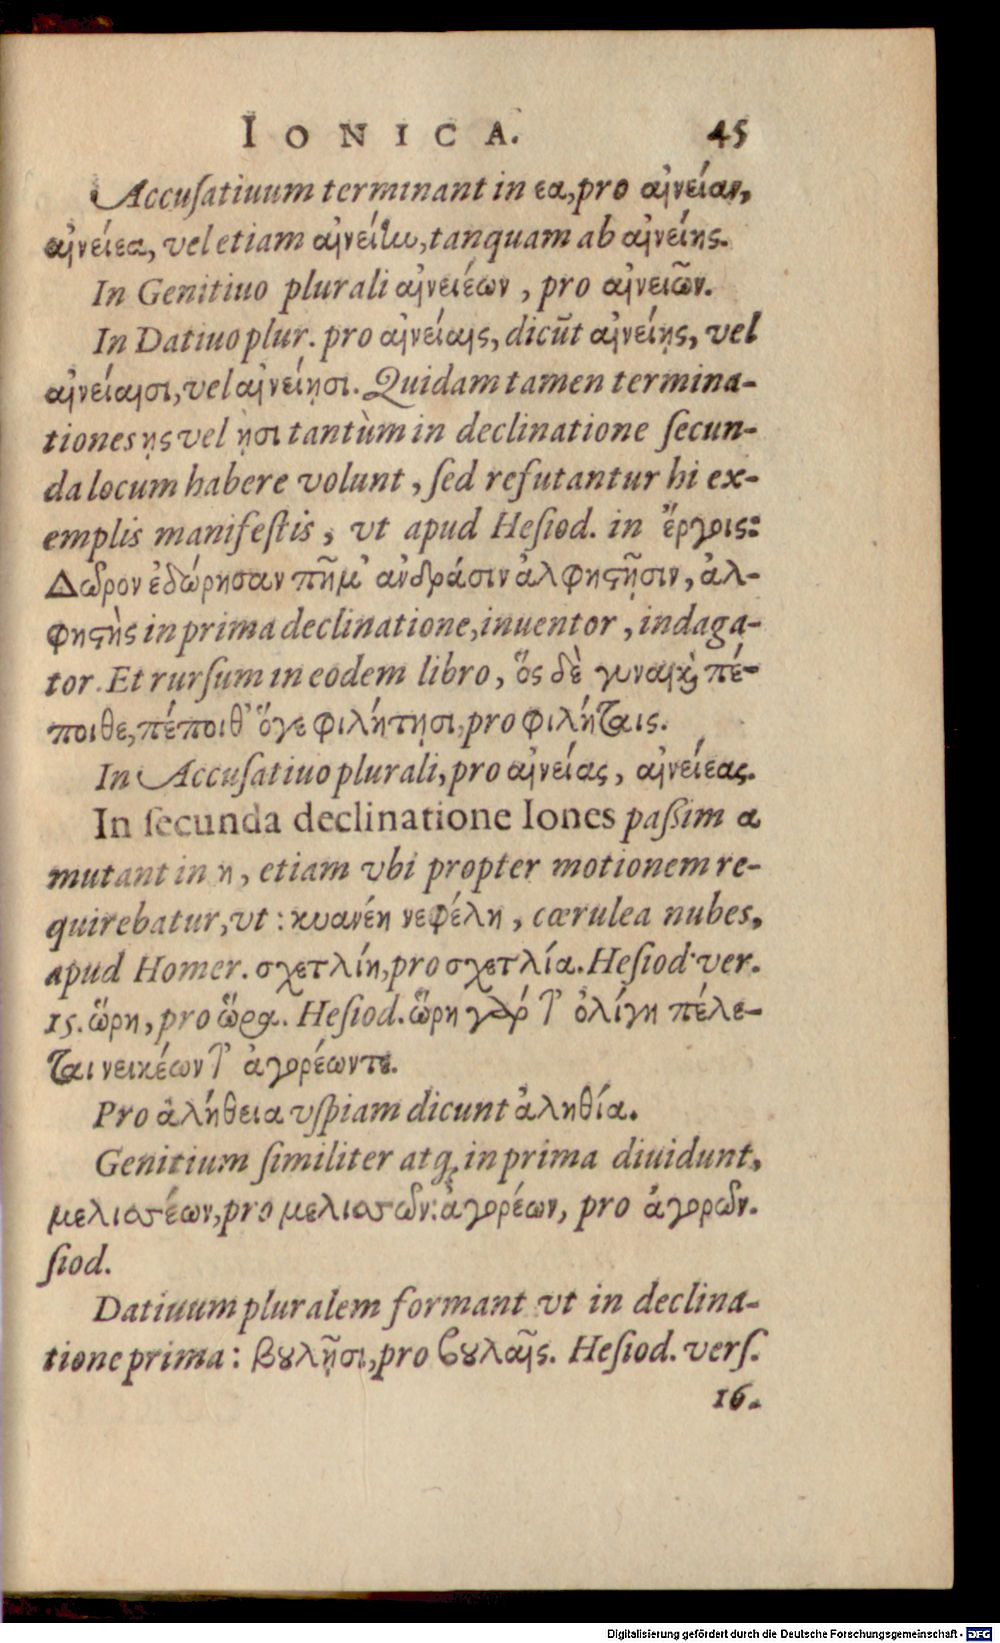 IONICA. 45
Accuſatiuum terminant in εα, pro αἰνείαν,
αἰνείεα, vel etiam αἰνείην, tanquam ab αἰνείης.
In Genitiuo plurali αἰνειέων, pro αἰνειῶν.
In Datiuo plur. pro αἰνείαις, dicũt αἰνείῃς, vel
αἰνείαισι, vel αἰνείῃσι. Quidam tamen termina-
tiones ῃς vel ῃσι tantùm in declinatione ſecun-
da locum habere volunt, ſed refutantur hi ex-
emplis manifeſtis, vt apud Heſiod. in ἔργοις:
Δῶρον ἐδώρησαν πῆμ' ἀνδράσιν ἀλφηϛῇσιν, ἀλ-
φηϛὴς in prima declinatione, inuentor, indaga-
tor. Et rurſum in eodem libro, ὅς δὲ γυναικὶ πέ-
ποιθε, πέποιθ' ὅγε φιλήτῃσι, pro φιλήταις.
In Accuſatiuo plurali, pro αἰνείας, αἰνείέας.
In ſecunda declinatione Iones paßim α
mutant in η, etiam vbi propter motionem re-
quirebatur, vt: κυανέη νεφέλη, cœrulea nubes,
apud Homer. σχετλίη, pro σχετλία. Heſiod. ver.
15. ὥρη, pro ὥρα. Heſiod. ὥρη γάρ τ' ὀλίγη πέλε-
ται νεικέων τ' ἀγορέωντε.
Pro ἀλήθεια vſpiam dicunt ἀληθία.
Genitium ſimiliter atq; in prima diuidunt,
μελιασέων, pro μελιασῶν: ἀγορέων, pro ἀγορῶν.
ſiod.
Datiuum pluralem formant vt in declina-
tione prima: βȣλῇσι, pro βȣλαῖς. Heſiod. verſ.
16.
Digitalisierung gefördert durch die Deutsche Forschungsgemeinschaft - DFG